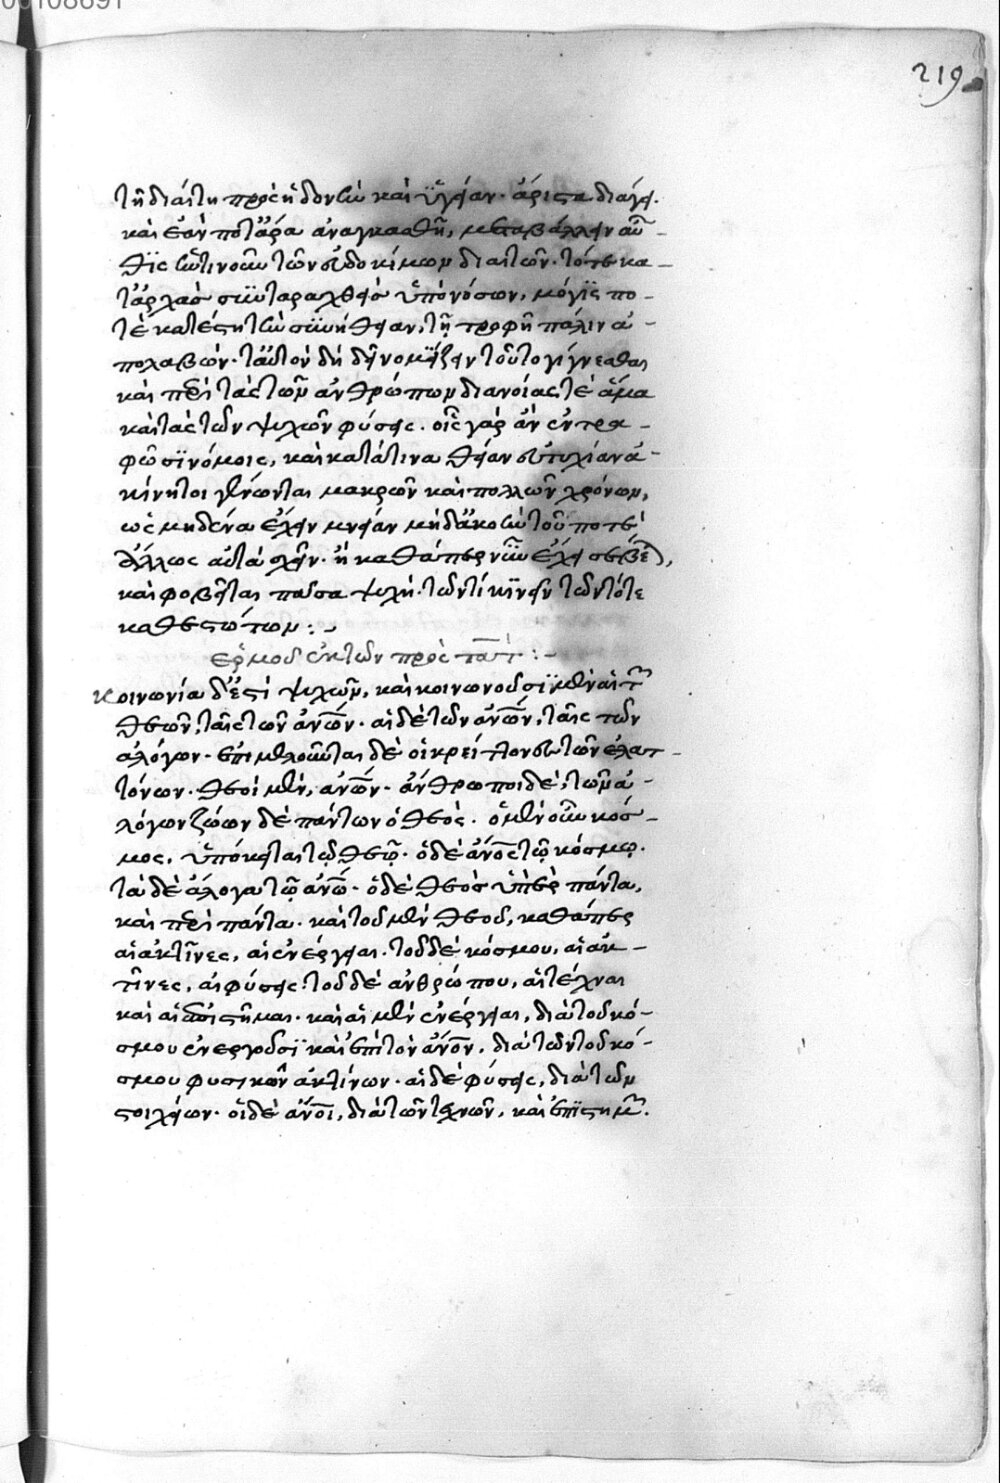 00108691
219
τῆ διαίτη πρὸς ἡδονὴν καὶ ὑγίειαν· ἄριστα διάγει.
καὶ ἐάν ποτ' ἄρα ἀναγκασθῆ, μεταβάλλειν αὖ-
θις ἡντινοῦν τῶν εὐδοκίμων διαιτῶν· τότε κα-
τ' ἀρχὰς συνταραχθεὶς ὑπὸ νόσων, μόγις πο-
τὲ κατέστη τὴν συνήθειαν, τῆ τροφῆ πάλιν ἀ-
πολαβών· ταὐτὸν δὴ δεῖ νομίζειν τοῦτο γίγνεσθαι
καὶ περὶ τὰς τῶν ἀνθρώπων διανοίας τὲ ἅμα
καὶ τὰς τῶν ψυχῶν φύσεις. οἷς γὰρ ἂν ἐντρα-
φῶσι νόμοις, καὶ κατά τινα θείαν εὐτυχίαν ἀ-
κίνητοι γένωνται μακρῶν καὶ πολλῶν χρόνων,
ὡς μηδένα ἔχειν μνείαν μηδ' ἀκοὴν τοῦ ποτὲ
ἄλλως αὐτὰ σχεῖν· ἢ καθάπερ νῦν ἔχει σέβεται,
καὶ φοβεῖται πᾶσα ψυχὴ· τῶν τί κινεῖν τῶν τότε
καθεστώτων:~
ἑρμοῦ ἐκ τῶν πρὸς τάτ:~
κοινωνία δέ ἐστι ψυχῶν, καὶ κοινωνοῦσι μὲν αἱ τῶν
θεῶν, ταῖς τῶν ἀνῶν· αἱ δὲ τῶν ἀνῶν, ταῖς τῶν
ἀλόγων· ἐπιμελοῦνται δὲ οἱ κρείττονες τῶν ἐλατ-
τόνων· θεοὶ μὲν, ἀνῶν· ἄνθρωποι δὲ, τῶν ἀ-
λόγων ζώων δὲ πάντων ὁ θεός. ὁ μὲν οὖν κόσ-
μος, ὑπόκειται τῷ θεῷ· ὁ δὲ ἄνος τῷ κόσμῳ.
τὰ δὲ ἄλογα τῷ ἀνῷ· ὁ δὲ θεὸς ὑπὲρ πάντα,
καὶ περὶ πάντα· καὶ τοῦ μὲν θεοῦ, καθάπερ
αἱ ἀκτῖνες, αἱ ἐνέργειαι· τοῦ δὲ κόσμου, αἱ ἀκ-
τῖνες, αἱ φύσεις· τοῦ δὲ ἀνθρώπου, αἱ τέχναι
καὶ αἱ ἐπιστῆμαι· καὶ αἱ μὲν ἐνέργειαι, διὰ τοῦ κό-
σμου ἐνεργοῦσι καὶ ἐπὶ τὸν ἄνον, διὰ τῶν τοῦ κό-
σμου φυσικῶν ἀκτίνων· αἱ δὲ φύσεις, διὰ τῶν
στοιχείων· οἱ δὲ ἄνοι, διὰ τῶν τεχνῶν, καὶ ἐπιστημῶν.